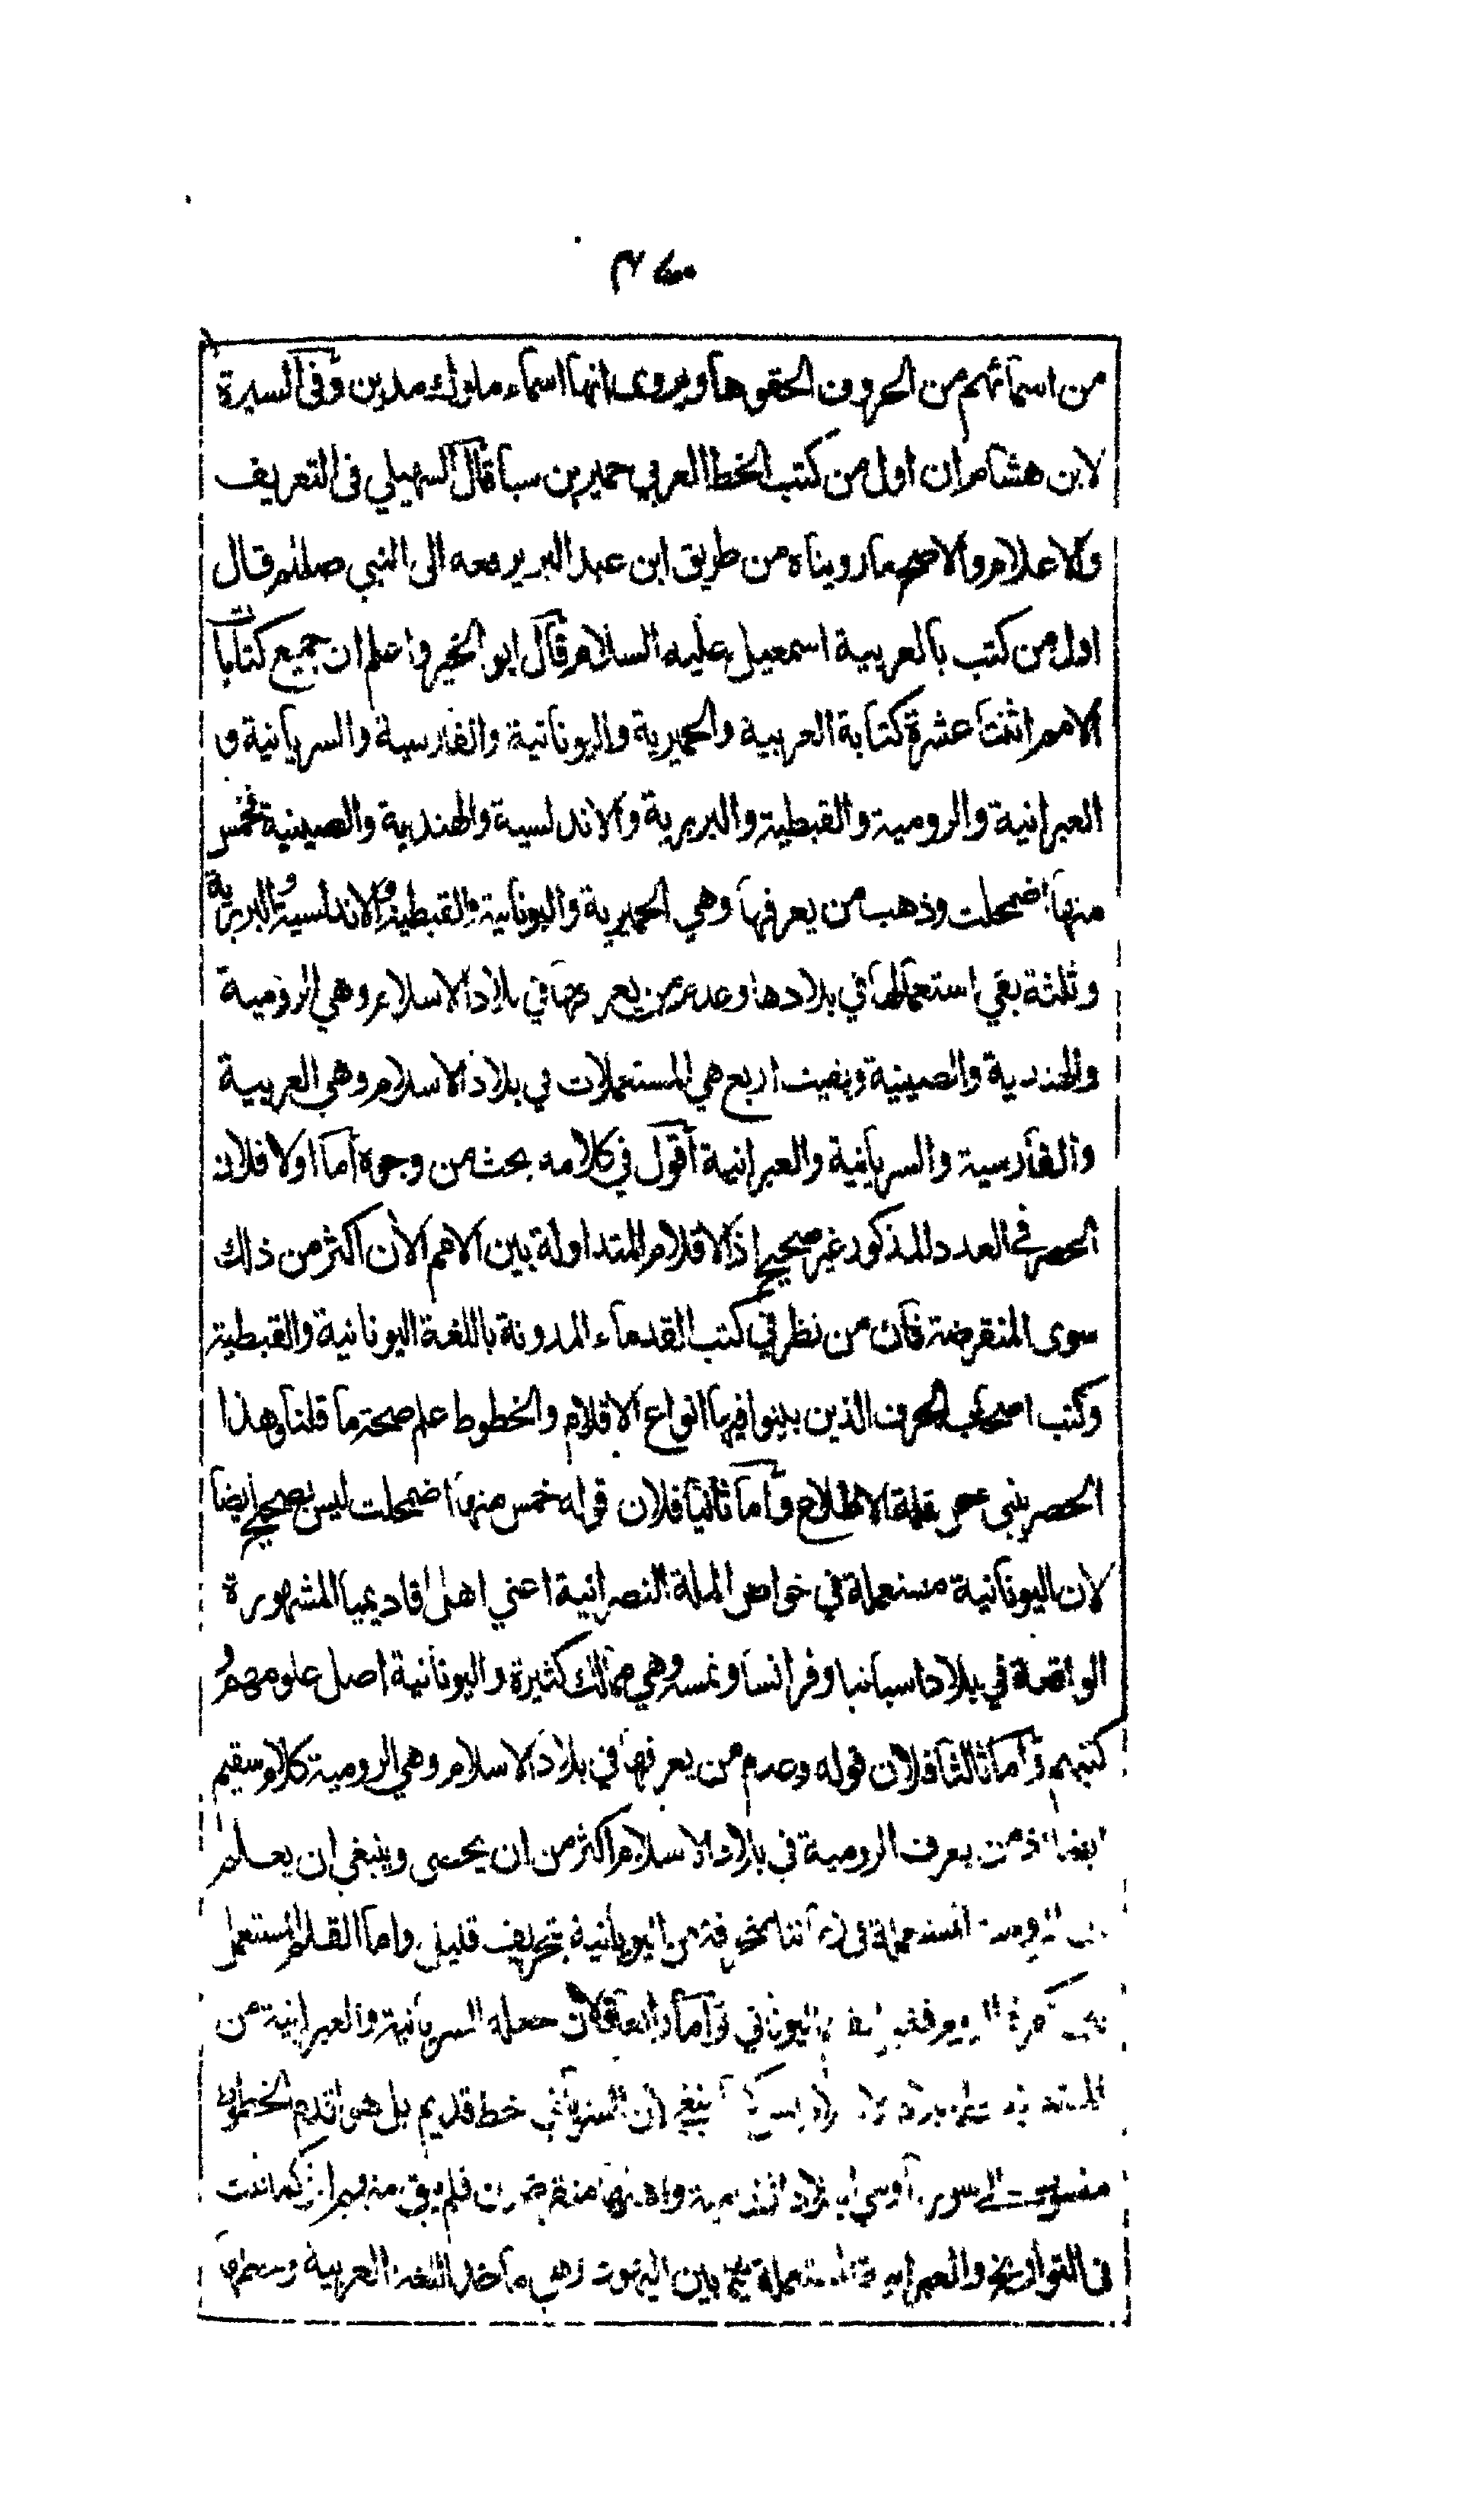 من اسمائهم من الحروف الحقوها ويروى انها اسماء ملوك مدين وفى السيرة
لابن هشام ان اول من كتب الخط العربي حمير بن سبا قال السهيلي فى التعريف
والاعلام والاصح ما رويناه من طريق ابن عبد البر يرفعه الى النبي صللم قال
اول من كتب بالعربية اسمعيل عليه السلام قال ابو الخير واعلم ان جميع كتابات
الامم اثنتا عشرة كتابة العربية والحميرية واليونانية والفارسية والسريانية و
العبرانية والرومية والقبطية والبربرية والاندلسية والهندية والصينية فخمس
منها اضمحلت وذهب من يعرفها وهي الحميرية واليونانية والقبطية والاندلسية والبربرية
وثلثة بقي استعمالها في بلادها وعدم من يعرفها في بلاد الاسلام وهي الرومية
والهندية والصينية وبقيت اربع هي المستعملات في بلاد الاسلام وهي العربية
والفارسية والسريانية والعبرانية اقول في كلامه بحث من وجوه اما اولا فلان
الحصر في العدد المذكور غير صحيح اذ الاقلام المتداولة بين الامم الان اكثر من ذلك
سوى المنقرضة فان من نظر في كتب القدماء المدونة باللغة اليونانية والقبطية
وكتب اصحاب الحرف الذين بينوا فيها انواع الاقلام والخطوط علم صحة ما قلنا وهذا
الحصر ينبى عن قلة الاطلاع واما ثانيا فلان قوله خمس منها اضمحلت ليس بصحيح ايضا
لان اليونانية مستعملة في خواص الملة النصرانية اعني اهل اقاديميا المشهورة
الواقعة في بلاد اسبانيا وفرانسا ونمسه وهي ممالك كثيرة واليونانية اصل علومهم و
كتبهم واما ثالثا فلان قوله وعدم من يعرفها في بلاد الاسلام وهي الرومية كلام سقيم
ايضا اذ من يعرف الرومية في بلاد الاسلام اكثر من ان يحصى وينبغي ان يعلم
ان الرومية المستعملة في زماننا منحرفة من اليونانية بتحريف قليل واما القلم المستعمل
بين كفرة الروم فغير القلم اليوناني واما رابعا فلان جعله السريانية والعبرانية من
المستعملات في بلاد الاسلام ليس كما ينبغي لان السرياني خط قديم بل هو اقدم الخطوط
منسوب الى سوريا وهي البلاد الشامية واهلها منقرضون فلم يبق منهم اثر كما ثبت
فى التواريخ والعبرانية المستعملة فيما بين اليهود وهي ماخذ اللغة العربية وخطها